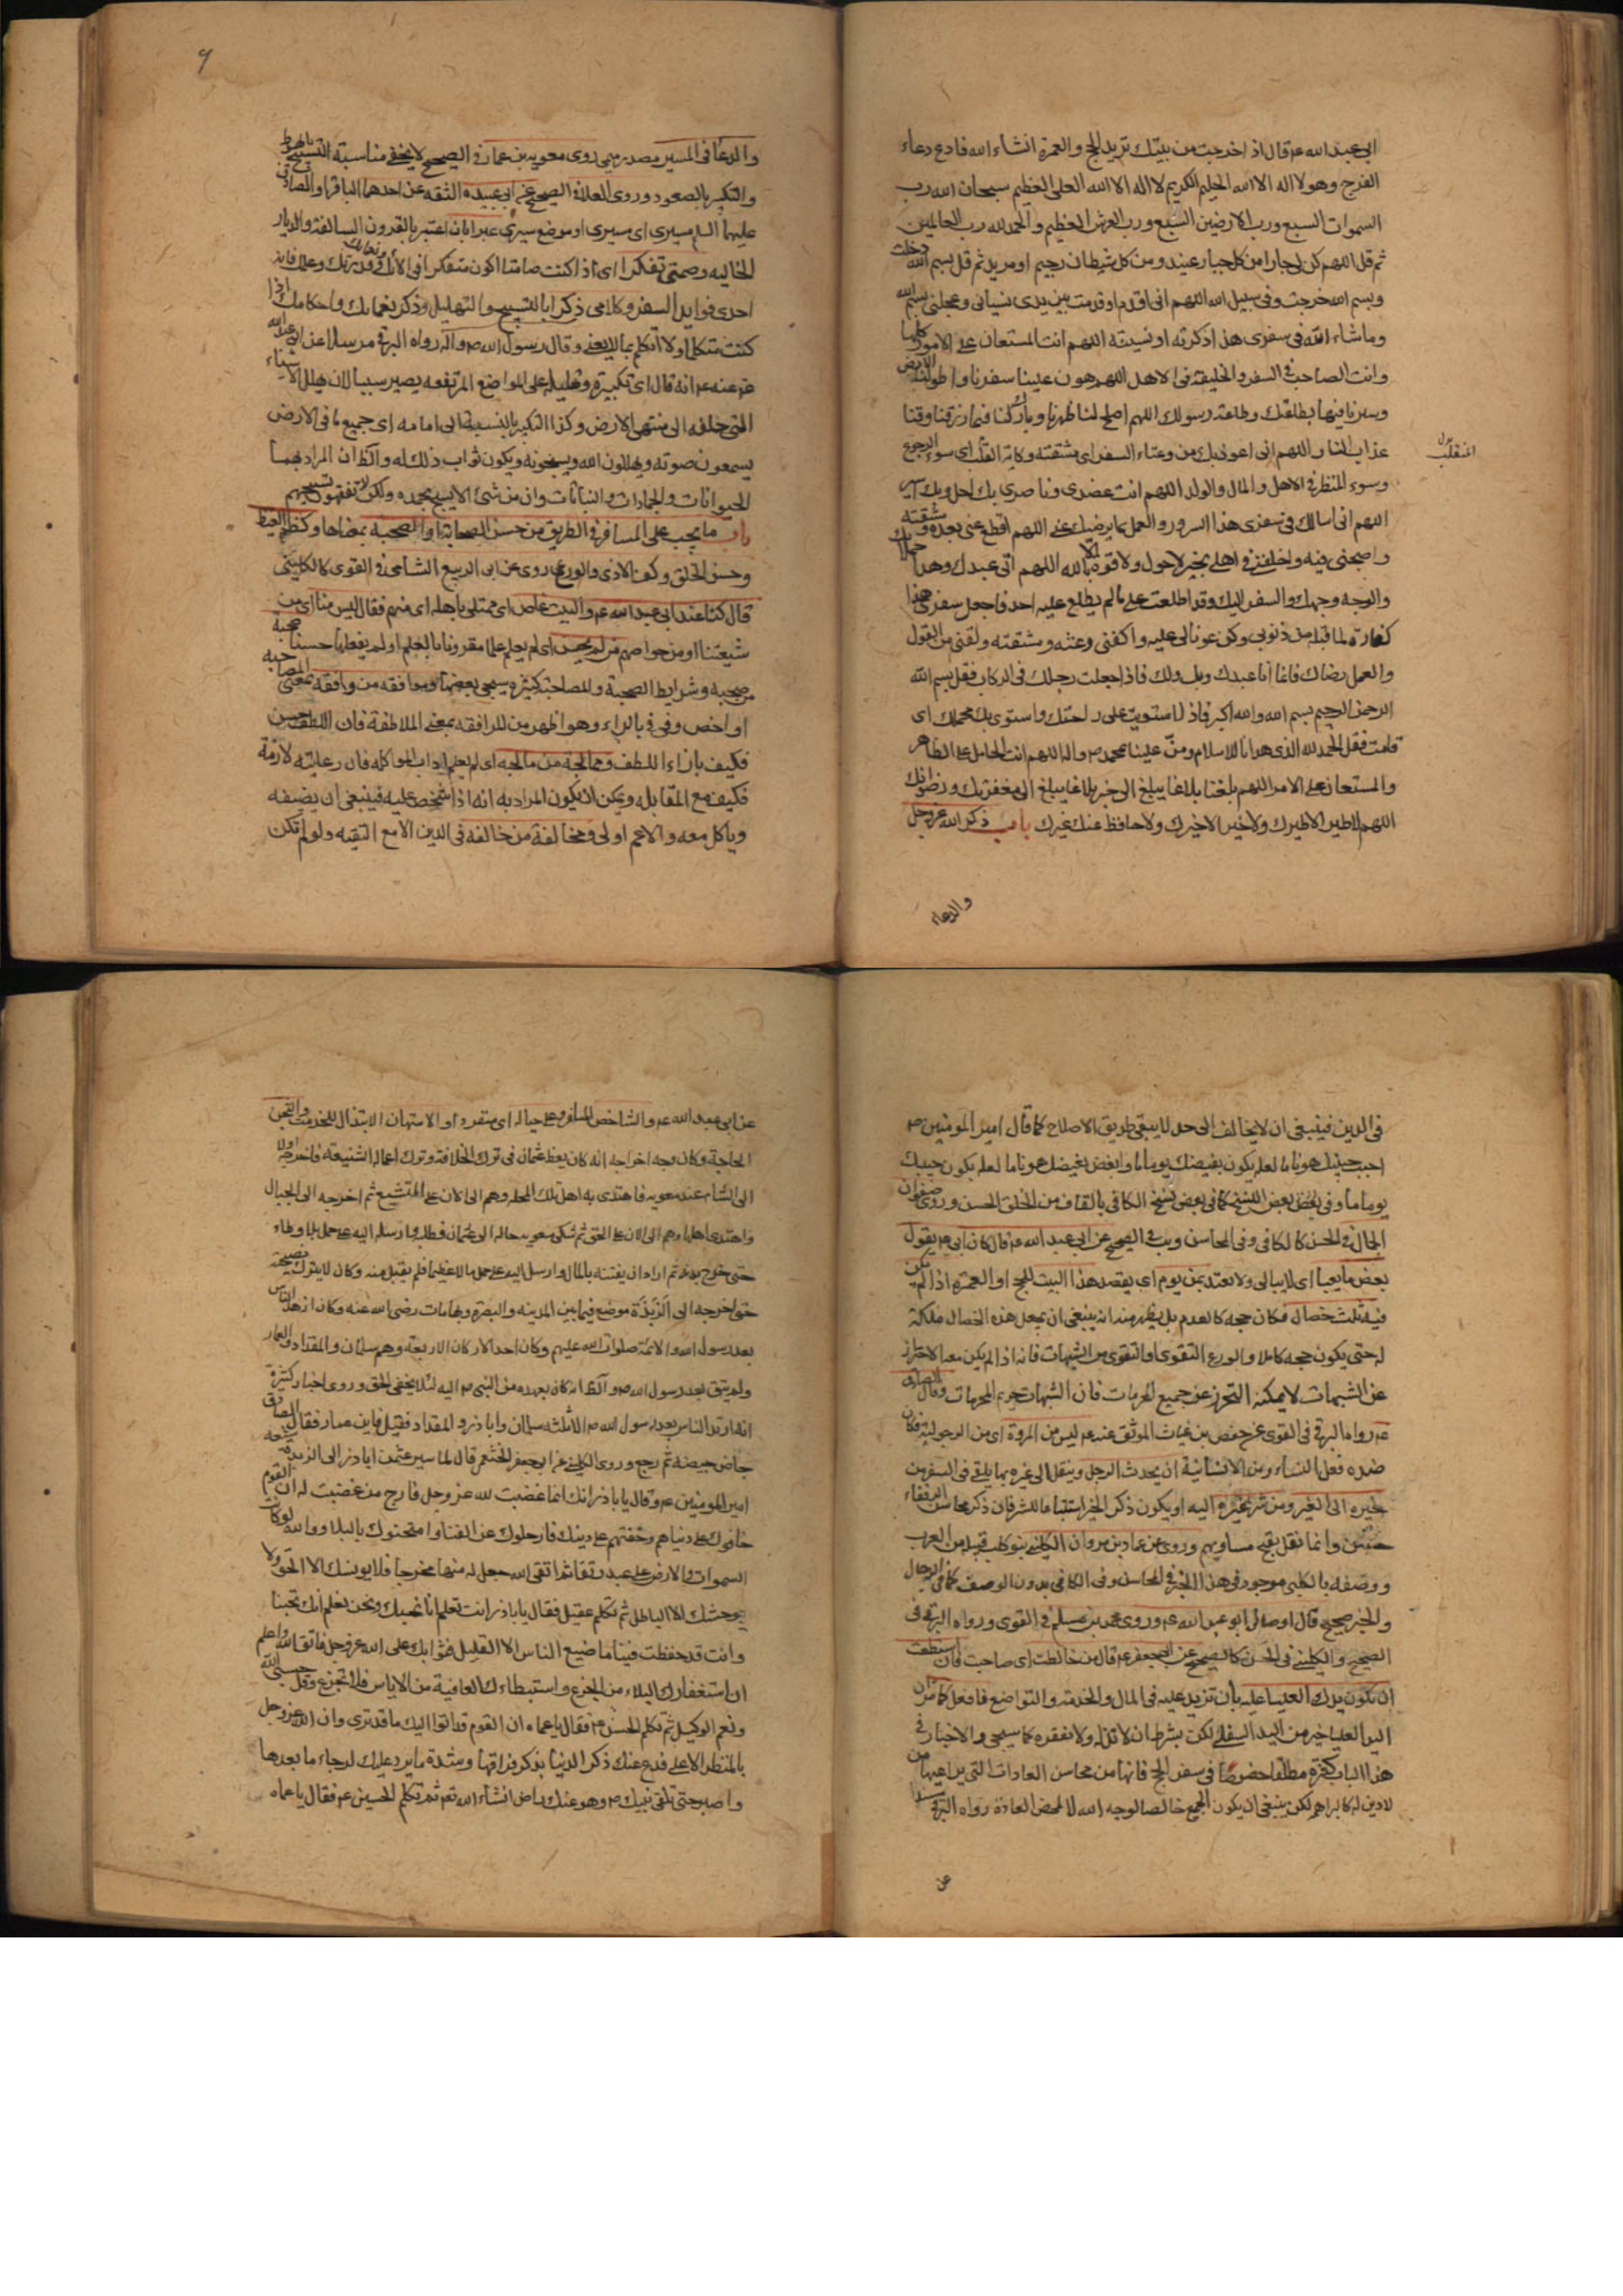 ابي عبد الله ع قال اذا خرجت من بيتك تريد الحج والعمرة انشاء الله فادع دعاء
الفرج وهو لا اله الا الله الحليم الكريم لا اله الا الله العلي العظيم سبحان الله رب
السموات السبع ورب الارضين السبع ورب العرش العظيم والحمد لله رب العالمين
ثم قل اللهم كن لي جارا من كل جبار عنيد ومن كل شيطان رجيم او مريد ثم قل بسم الله دخلت
وبسم الله خرجت وفي سبيل الله اللهم اني اقدم او قدمت بين يدي نسياني وعجلتي بسم الله
وما شاء الله في سفري هذا ذكرته او نسيته اللهم انت المستعان على الامور كلها
وانت الصاحب في السفر والخليفة في الاهل اللهم هون علينا سفرنا واطو لنا الارض
وسيرنا فيها بطاعتك وطاعة رسولك اللهم اصلح لنا ظهرنا وبارك لنا فيما رزقتنا وقنا
عذاب النار اللهم اني اعوذ بك من وعثاء السفر اي مشقته وكابة المنقلب اي سوء الرجوع
المنقلب
وسوء المنظر في الاهل والمال والولد اللهم انت عضدي وناصري بك احل وبك اسير
اللهم اني اسالك في سفري هذا السرور والعمل بما يرضيك عني اللهم اقطع عني بعده ومشقته
واصحبني فيه واخلفني في اهلي بخير لا حول ولا قوة الا بالله اللهم اني عبدك وهذا حملانك
والوجه وجهك والسفر اليك وقد اطلعت على ما لم يطلع عليه احد فاجعل سفري هذا
كفارة لما قبله من ذنوبي وكن عونا لي عليه واكفني وعثه ومشقته ولقني من القول
والعمل رضاك فانما انا عبدك وبك ولك فاذا جعلت رجلك في الركاب فقل بسم الله
الرحمن الرحيم بسم الله والله اكبر فاذا استويت على راحلتك واستوى بك محملك اي
قامت فقل الحمد لله الذي هدانا للاسلام ومن علينا بمحمد ص واله اللهم انت الحامل على الظهر
والمستعان على الامر اللهم بلغنا بلاغا يبلغ الى خير بلاغا يبلغ الى مغفرتك ورضوانك
اللهم لا طير الا طيرك ولا خير الا خيرك ولا حافظ عنك غيرك باب ذكر الله عز وجل
والدعاء
٩
والدعا في المسير مصدر ميمي روى معوية بن عمار في الصحيح لا يخفى مناسبة التسبيح بالهبوط
والتكبير بالصعود وروى العلاء في الصحيح عن ابي عبيدة الثقه عن احدهما الباقر او الصادق
عليهما السلم مسيري اي سيري او موضع سيري عبرا بان اعتبر بالقرون السالفة والديار
الخاليه وصمتي تفكرا اي اذا كنت صامتا اكون متفكرا في الائك وقدرتك
احدى فوايد السفر وكلامي ذكرا بالتسبيح والتهليل وذكر نعمائك واحكامك اذا
كنت متكلما ولا اتكلم بما لا يعني وقال رسول الله ص واله رواه البرقي مرسلا عن ابي عبد الله
ع عنه ع انه قال اي تكبيرة وتهليلة على المواضع المرتفعه يصير سببا لان يهلل الاشياء
التي خلفه الى منتهى الارض وكذا التكبير بالنسبة الى امامه اي جميع ما في الارض
يسمعون صوته ويهللون الله ويسبحونه ويكون ثواب ذلك له والظ ان المراد بهما
الحيوانات والجمادات والنباتات وان من شئ الا يسبح بحمده ولكن لا تفقهون تسبيحهم
باب ما يجب على المسافر في الطريق من حسن الصحابة او الصحبه بمعناها وكظم الغيظ
وحسن الخلق وكف الاذى والورع روى عن ابي الربيع الشامي في القوي كالكليني
قال كنا عند ابي عبد الله ع والبيت غاص اي ممتلي باهله اي منهم فقال ليس منا اي من
شيعتنا او من خواصهم من لم يحسن اي لم يعلم علما مقرونا بالعلم او لم يفعلها حسنا صحبة
من صحبه وشرايط الصحبة والمصاحبة كثيرة سيجئ بعضها وموافقه من وافقه بمعنى المصاحبة
او اخص وفي في بالراء وهو اظهر من المرافقه بمعنى الملاطفة فان اللطف حسن
فكيف بازاء اللطف وممالحة من مالحه اي لم يعلم اداب المواكله فان رعايته لازمة
فكيف مع المقابله ويمكن ان يكون المراد به انه اذا شخص عليه فينبغي ان يضيفه
وياكل معه والاعم اولى ومخالفة من خالفه في الدين الا مع التقيه ولو لم تكن
في الدين فينبغي ان لا يخالف الى حد لا يبقى طريق الاصلاح كما قال امير المومنين ص
احبب حبيبك هونا ما لعله يكون بغيضك يوما ما وابغض بغيضك هونا ما لعله يكون حبيبك
يوما ما وفي بعض النسخ كما في بعض نسخ الكافي بالقاف من الخلق الحسن وروى صفوان
الجمال في الحسن كالكافي وفي المحاسن ويب في الصحيح عن ابي عبد الله ع قال كان ابي ع يقول
بعض ما يعبا اي لا يبالي ولا يعتد بمن يوم اي يقصد هذا البيت للحج او العمرة اذا لم يكن
فيه ثلث خصال فكان حجه كالعدم بل يظهر منه انه ينبغي ان يجعل هذه الخصال ملكة
له حتى يكون حجه كاملا والورع التقوى او التقوى من الشبهات فانه اذا لم يكن معه الاحتراز
عن الشبهات لا يمكنه التحرز عن جميع المحرمات فان الشبهات حريم المحرمات وقال الصادق
ع رواه البرقي في القوي عن حفص بن غياث الموثق عنه ع ليس من المروة اي من الرجولية فكان
ضده فعل النساء ومن الانسانية ان يحدث الرجل وينقل الى غيره بما يلقى في السفر من
خيره الى الغير ومن شر غيره اليه او يكون ذكر الخير استتباعا للشر فان ذكر محاسن الرفقاء
حسن وانما نقل بقبح مساويهم وروى عن عمار بن مروان الكلبي بنو كلب قبيلة من العرب
ووصفه بالكلبي موجود في هذا الخبر في المحاسن وفي الكافي بدون الوصف كما في الرجال
والخبر صحيح قال اوصاني ابو عبد الله ع وروى محمد بن مسلم في القوي ورواه البرقي في
الصحيح والكليني في الحسن كالصحيح عن ابي جعفر ع قال من خالطت اي صاحبت فان استطعت
ان تكون يدك العليا عليه بان تزيد عليه في المال والخدمة والتواضع فافعل كما مر ان
اليد العليا خير من اليد السفلى لكن بشرط ان لا تذله ولا تفقره كما سيجي والاخبار في
هذا الباب كثيرة مطلقا خصوصا في سفر الحج فانها من محاسن العادات التي يراعيها من
لا دين له كالبراهمه لكن ينبغي ان يكون الجميع خالصا لوجه الله لا لمحض العادة رواه البرقي مسندا
عن
عن ابي عبد الله ع والشاخص المسافر وعلى حياله اي منفردا والاستهان الابتذال للخدمة
الحاجة وكان وجه اخراجه انه كان يعظ عثمان في ترك الخلافة وترك اعماله الشنيعة فاخرجه اولا
الى الشام عند معويه فاهتدى به اهل تلك المحلة وهم الى الان على التشيع ثم اخرجه الى الجبال
واهتدى اهلها وهم الى الان على الحق ثم شكى معويه حاله الى عثمان فطلبه وارسله اليه على جمل بلا وطاء
ثم اراد ان يفتنه بالمال وارسل اليه مالا عظيما فلم يقبل منه وكان لا يترك نصيحته
حتى اخرجه الى الربذة موضع فيما بين المدينه والبصرة وبها مات رضي الله عنه وكان ازهد الناس
بعد رسول الله والائمة صلوات الله عليهم وكان احد الاركان الاربعة وهم سلمان والمقداد والعمار
ولم يتق بعد رسول الله ص واله لانه كان بعهده من النبي ص اليه لئلا يخفى الحق وروى اخبار كثيرة
انه ارتد الناس بعد رسول الله ص الا ثلثه سلمان وابا ذر والمقداد فقيل فاين عمار فقال الصادق
جاض جيضة ثم رجع وروى الكليني عن ابي جعفر الخثعمي قال لما سير عثمن ابا ذر الى الربذة شيعه
امير المومنين ع وقال يا با ذر انك انما غضبت لله عز وجل فارج من غضبت له ان القوم
خافوك على دنياهم وخفتهم على دينك فارحلوك عن الفناء وامتحنوك بالبلاء ووالله لو كانت
السموات والارض على عبد رتقا ثم اتقى الله جعل له منها مخرجا فلا يونسك الا الحق ولا
يوحشك الا الباطل ثم تكلم عقيل فقال يا باذر انت تعلم انا نحبك ونحن نعلم انك تحبنا
وانت قد حفظت فينا ما ضيع الناس الا القليل فثوابك على الله عز وجل فاتق الله واعلم
ان استغفارك البلاء من الجزع واستبطاءك العافية من الاياس فلا تجزع وقل حسبي الله
ونعم الوكيل ثم تكلم الحسن ع فقال يا عماه ان القوم قد اتوا اليك ما قد ترى وان الله عز وجل
بالمنظر الاعلى فدع عنك ذكر الدنيا بذكر فراقها وشدة ما يرد عليك لرجاء ما بعدها
واصبر حتى تلقى نبيك ص وهو عنك راض انشاء الله تعالى ثم تكلم الحسين ع فقال يا عماه